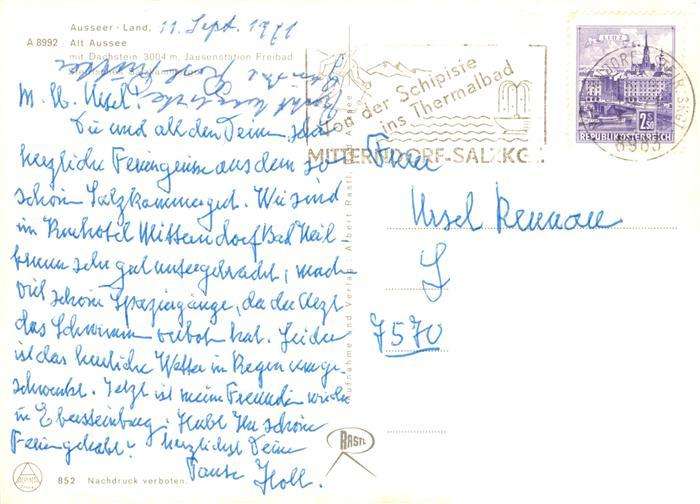 Ausseer-Land, 11. Sept. 1971
A 8992 Alt Aussee
mit Dachstein 3004 m, Jausenstation Freibad
M. lb. Ursel!
Dir und all den Deinen
herzliche Feriengrüsse aus dem so
schönen Salzkammergut. Wir sind
im Kurhotel Mitterndorf Bad Heil
brunn sehr gut untergebracht, machen
viel schöne Spaziergänge, da der Arzt
das Schwimmen verboten hat. Leider
ist das herrliche Wetter in Regen umge
schwenkt. Jetzt ist meine Freundin wieder
in Ebersteinburg. Habt Ihr schöne
Ferien gehabt? Herzlichst Deine
Tante Holl.
852 Nachdruck verboten
Aufnahme und Verlag Albert Rastl
RASTL
Von der Schipiste
ins Thermalbad
MITTERNDORF-SALZKG.
LINZ
2.50
REPUBLIK ÖSTERREICH
8983
Frau
Ursel
7570